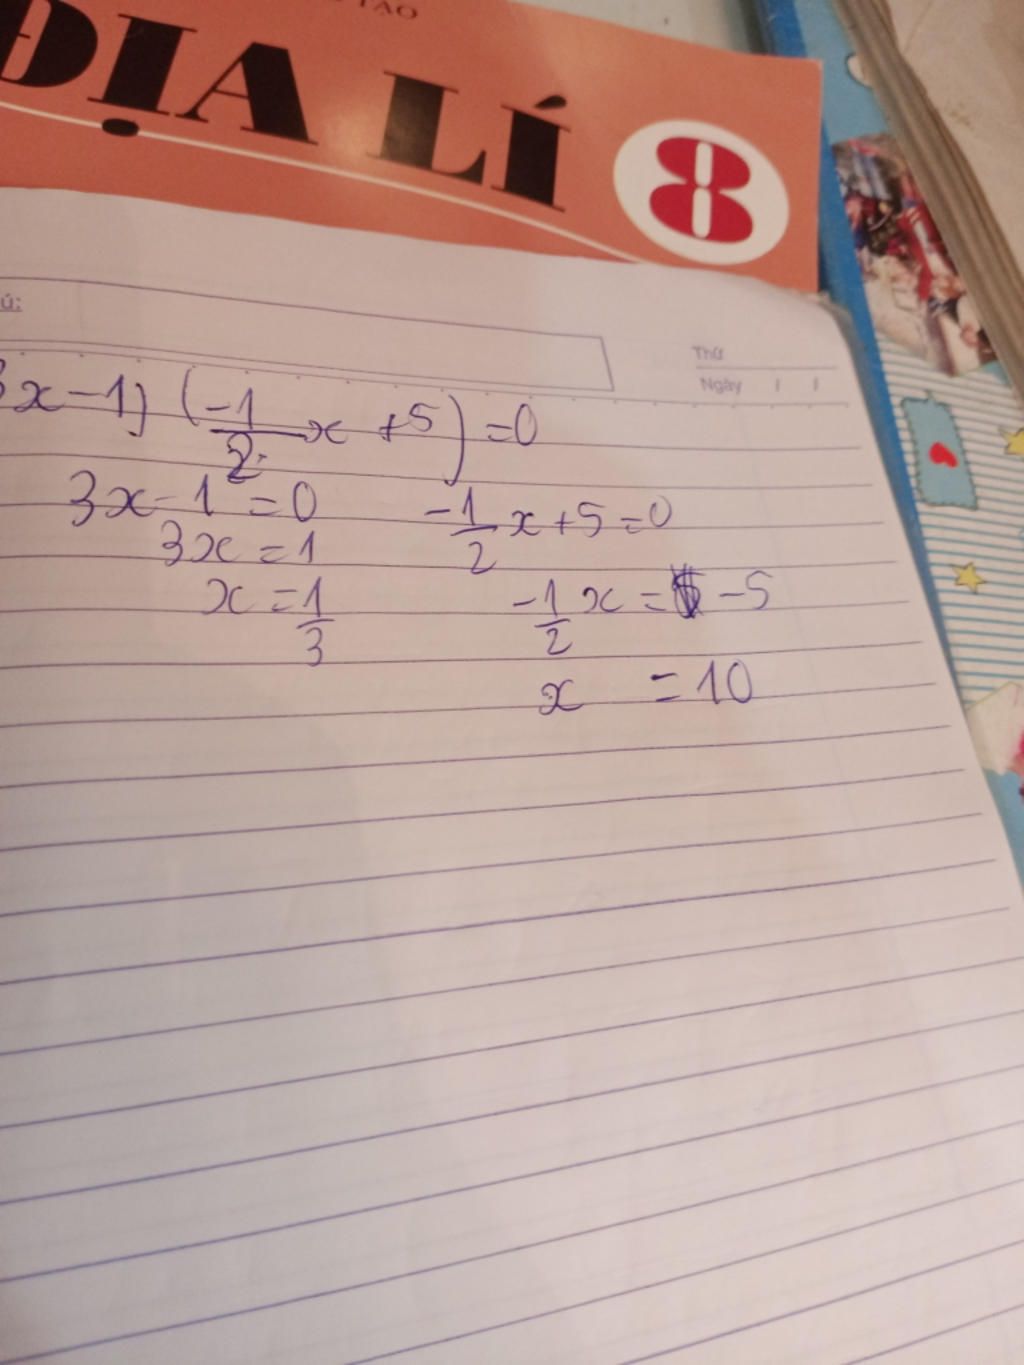 TẠO
ĐỊA LÍ 8
ú:
Thứ
Ngày / /
3x-1) (-1/2 x +5) =0
3x-1=0 -1/2 x+5=0
3x=1
x=1/3 -1/2 x= -5
x =10